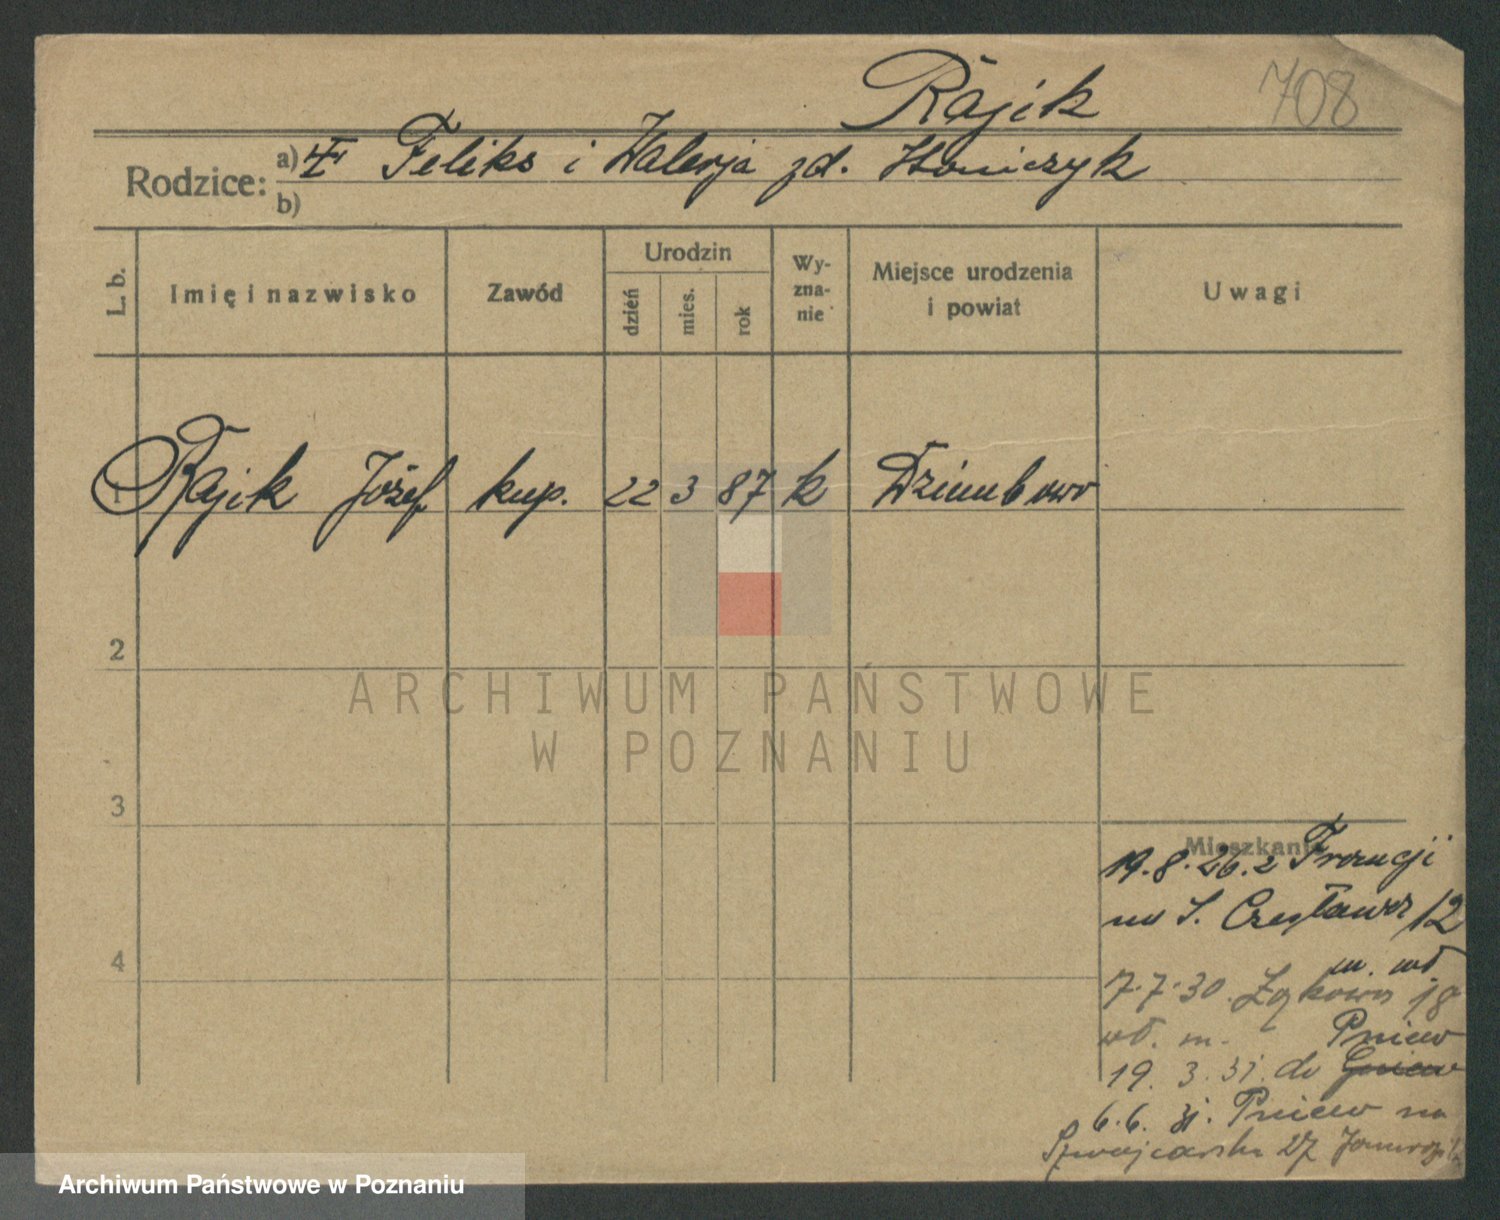 Rajik 708
Rodzice: a) Feliks i Walerja zd.
b)
L. b. Imię i nazwisko Zawód Urodzin dzień mies. rok Wy-zna-nie Miejsce urodzenia i powiat Uwagi
1 Rajik Józef kup. 22 3 87 k Dziembowo
2
ARCHIWUM PAŃSTWOWE
W POZNANIU
3
Mieszkanie
19.8.26. z Francji
na S. Czesława 12
m. wł.
4
7.7.30. Łąkowa 18
wł. m. Pniew
19. 3. 31. do Gniew
6.6. 31. Pniew na
Szwajcarska 27
Archiwum Państwowe w Poznaniu